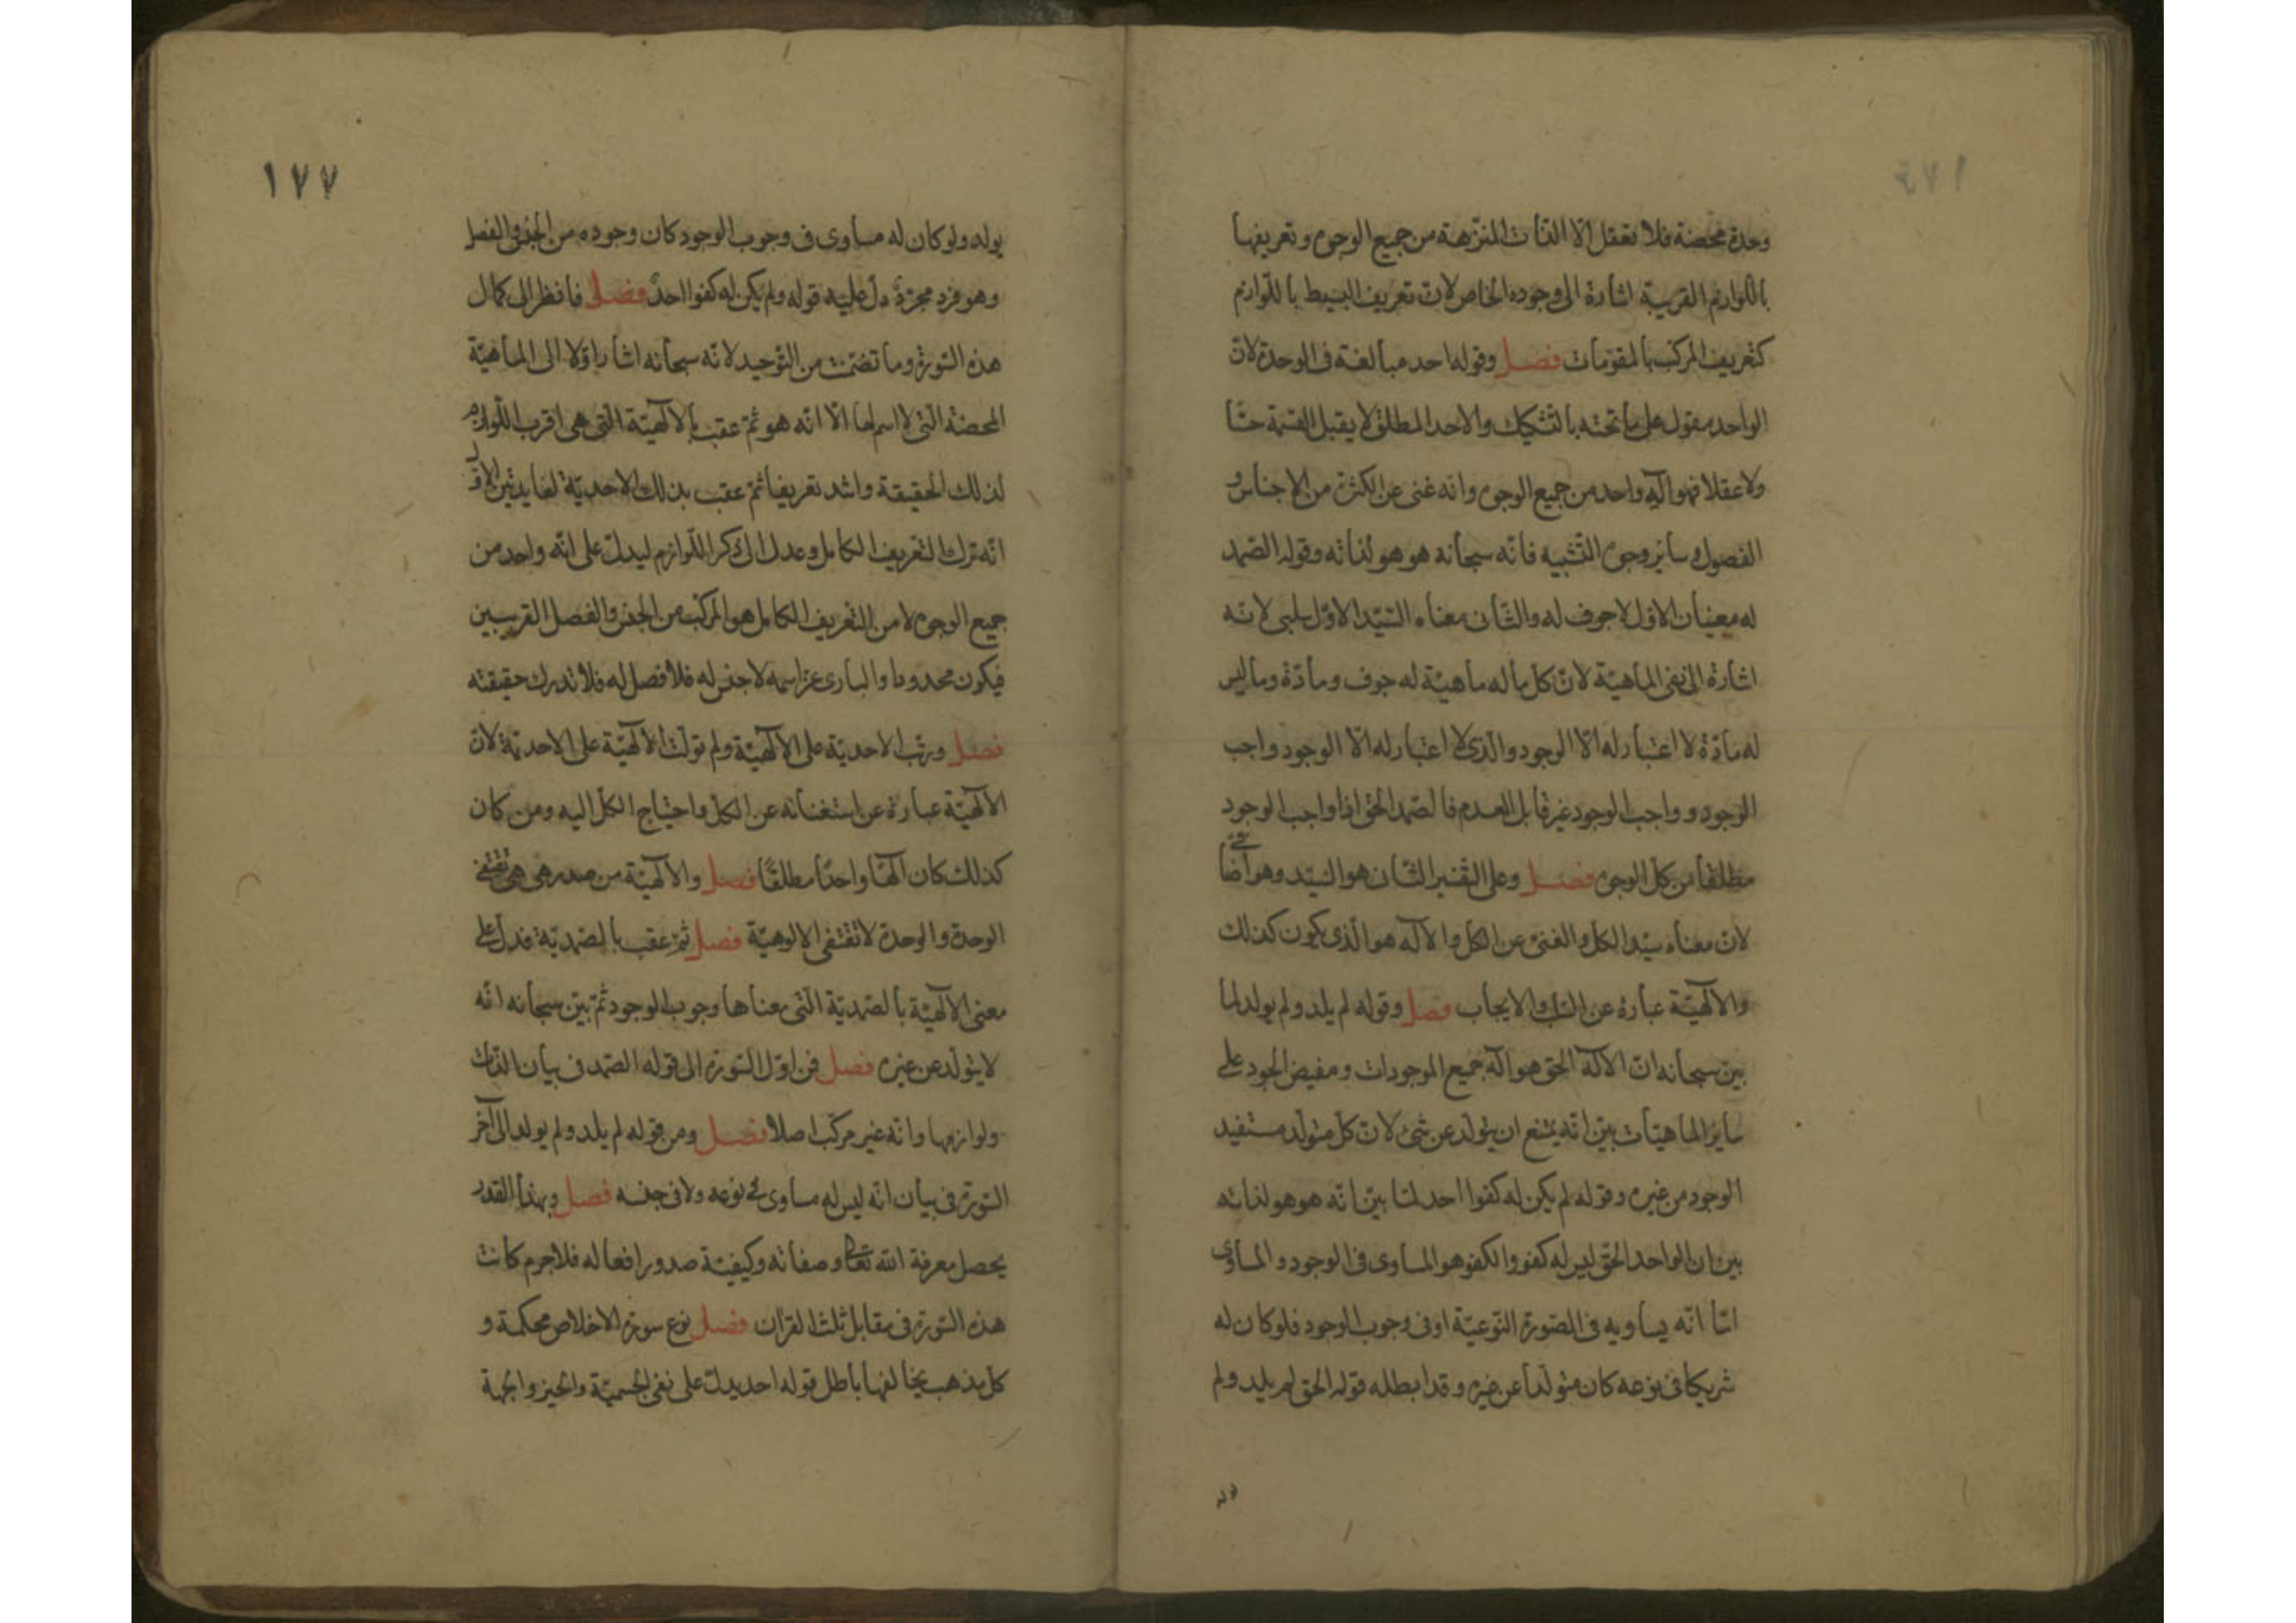 وحدة محضة فلا تعقل الا الذات المنزهة من جميع الوجوه وتعريفها
باللوازم القريبة اشارة الى وجوده الخاص لان تعريف البسيط باللوازم
كتعريف المركب بالمقومات فصل وقوله احد مبالغة فى الوحدة لان
الواحد مقول على ما تحته بالتشكيك والاحد المطلق لا يقبل القسمة حسا
ولا عقلا فهو اله واحد من جميع الوجوه وانه غنى عن الكثرة من الاجناس و
الفصول وساير وجوه التشبيه فانه سبحانه هو هو لذاته وقوله الصمد
له معنيان الاول لا جوف له والثانى معناه السيد الاول سلبى لانه
اشارة الى نفى الماهية لان كل ما له ماهية له جوف ومادة وما ليس
له مادة لا اعتبار له الا الوجود والذى لا اعتبار له الا الوجود واجب
الوجود وواجب الوجود غير قابل العدم فالصمد الحق اذا واجب الوجود
مطلقا من كل الوجوه فصل وعلى التفسير الثانى هو السيد وهو
لان معناه سيد الكل والغنى عن الكل والاله هو الذى يكون كذلك
والالهية عبارة عن السلب والايجاب فصل وقوله لم يلد ولم يولد لما
بين سبحانه ان الاله الحق هو اله جميع الموجودات ومفيض الجود على
ساير الماهيات بين انه يمتنع ان يتولد عن شئ لان كل متولد مستفيد
الوجود من غيره وقوله لم يكن له كفوا احد لما بين انه هو هو لذاته
بين ان الواحد الحق ليس له كفو والكفو هو المساوى فى الوجود والمساوى
اما انه يساويه فى الصورة النوعية او فى وجوب الوجود فلو كان له
شريكا فى نوعه كان متولدا عن غيره وقد ابطله قوله الحق لم يلد ولم
١٧٧
يولد ولو كان له مساوى فى وجوب الوجود كان وجوده من الجنس والفصل
وهو فرد مجرد دل عليه قوله ولم يكن له كفوا احد فصل فانظر الى كمال
هذه السورة وما تضمنت من التوحيد لانه سبحانه اشار اولا الى الماهية
المحضة التى لا اسم لها الا انه هو ثم عقب بالالهية التى هى اقرب اللوازم
لذلك الحقيقة واشد تعريفا ثم عقب بذلك الاحدية لفايدتين الاول
انه ترك التعريف الكامل وعدل الى ذكر اللوازم ليدل على انه واحد من
جميع الوجوه لا من التعريف الكامل هو المركب من الجنس والفصل القريبين
فيكون محدودا والبارى عز اسمه لا جنس له فلا فصل له فلا تدرك حقيقته
فصل ورتب الاحدية على الالهية ولم تولت الالهية على الاحدية لان
الالهية عبارة عن استغنائه عن الكل واحتياج الكل اليه ومن كان
كذلك كان الها واحدا مطلقا فصل والالهية من صدر هى هى تقتضى
الوحدة والوحدة لا تقتضى الالوهية فصل ثم عقب بالصمدية فدل على
معنى الالهية بالصمدية التى معناها وجوب الوجود ثم بين سبحانه انه
لا يتولد عن غيره فصل فمن اول السورة الى قوله الصمد فى بيان الذات
ولوازمها وانه غير مركب اصلا فصل ومن قوله لم يلد ولم يولد الى آخر
السورة فى بيان انه ليس له مساوى فى نوعه ولا فى جنسه فصل وبهذا القدر
يحصل معرفة الله تعالى وصفاته وكيفية صدور افعاله فلا جرم كانت
هذه السورة فى مقابل ثلث القران فصل نوع سورة الاخلاص محكمة و
كل مذهب يخالفها باطل قوله احد يدل على نفى الجسمية والحيز والجهة